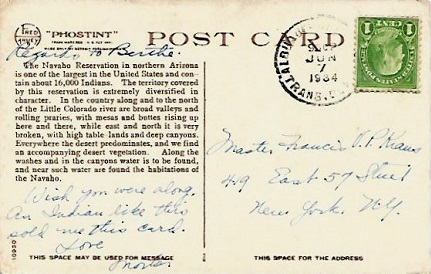 "PHOSTINT"
POST CARD
Regards to Berthe.
The Navaho Reservation in northern Arizona
is one of the largest in the United States and con-
tain about 16,000 Indians. The territory covered
by this reservation is extremely diversified in
character. In the country along and to the north
of the Little Colorado river are broad valleys and
rolling prairies, with mesas and buttes rising up
here and there, while east and north it is very
broken, with high table lands and deep canyons.
Everywhere the desert predominates, and we find
an accompanying desert vegetation. Along the
washes and in the canyons water is to be found,
and near such water are found the habitations of
the Navaho.
Wish you were along.
An Indian like this
sold me this card.
Love
10930
THIS SPACE MAY BE USED FOR MESSAGE
JUN
7
1934
TRANS.
1 CENT 1
Master Francis V. P. Kraus
419 East 57 Street
New York. N.Y.
THIS SPACE FOR THE ADDRESS